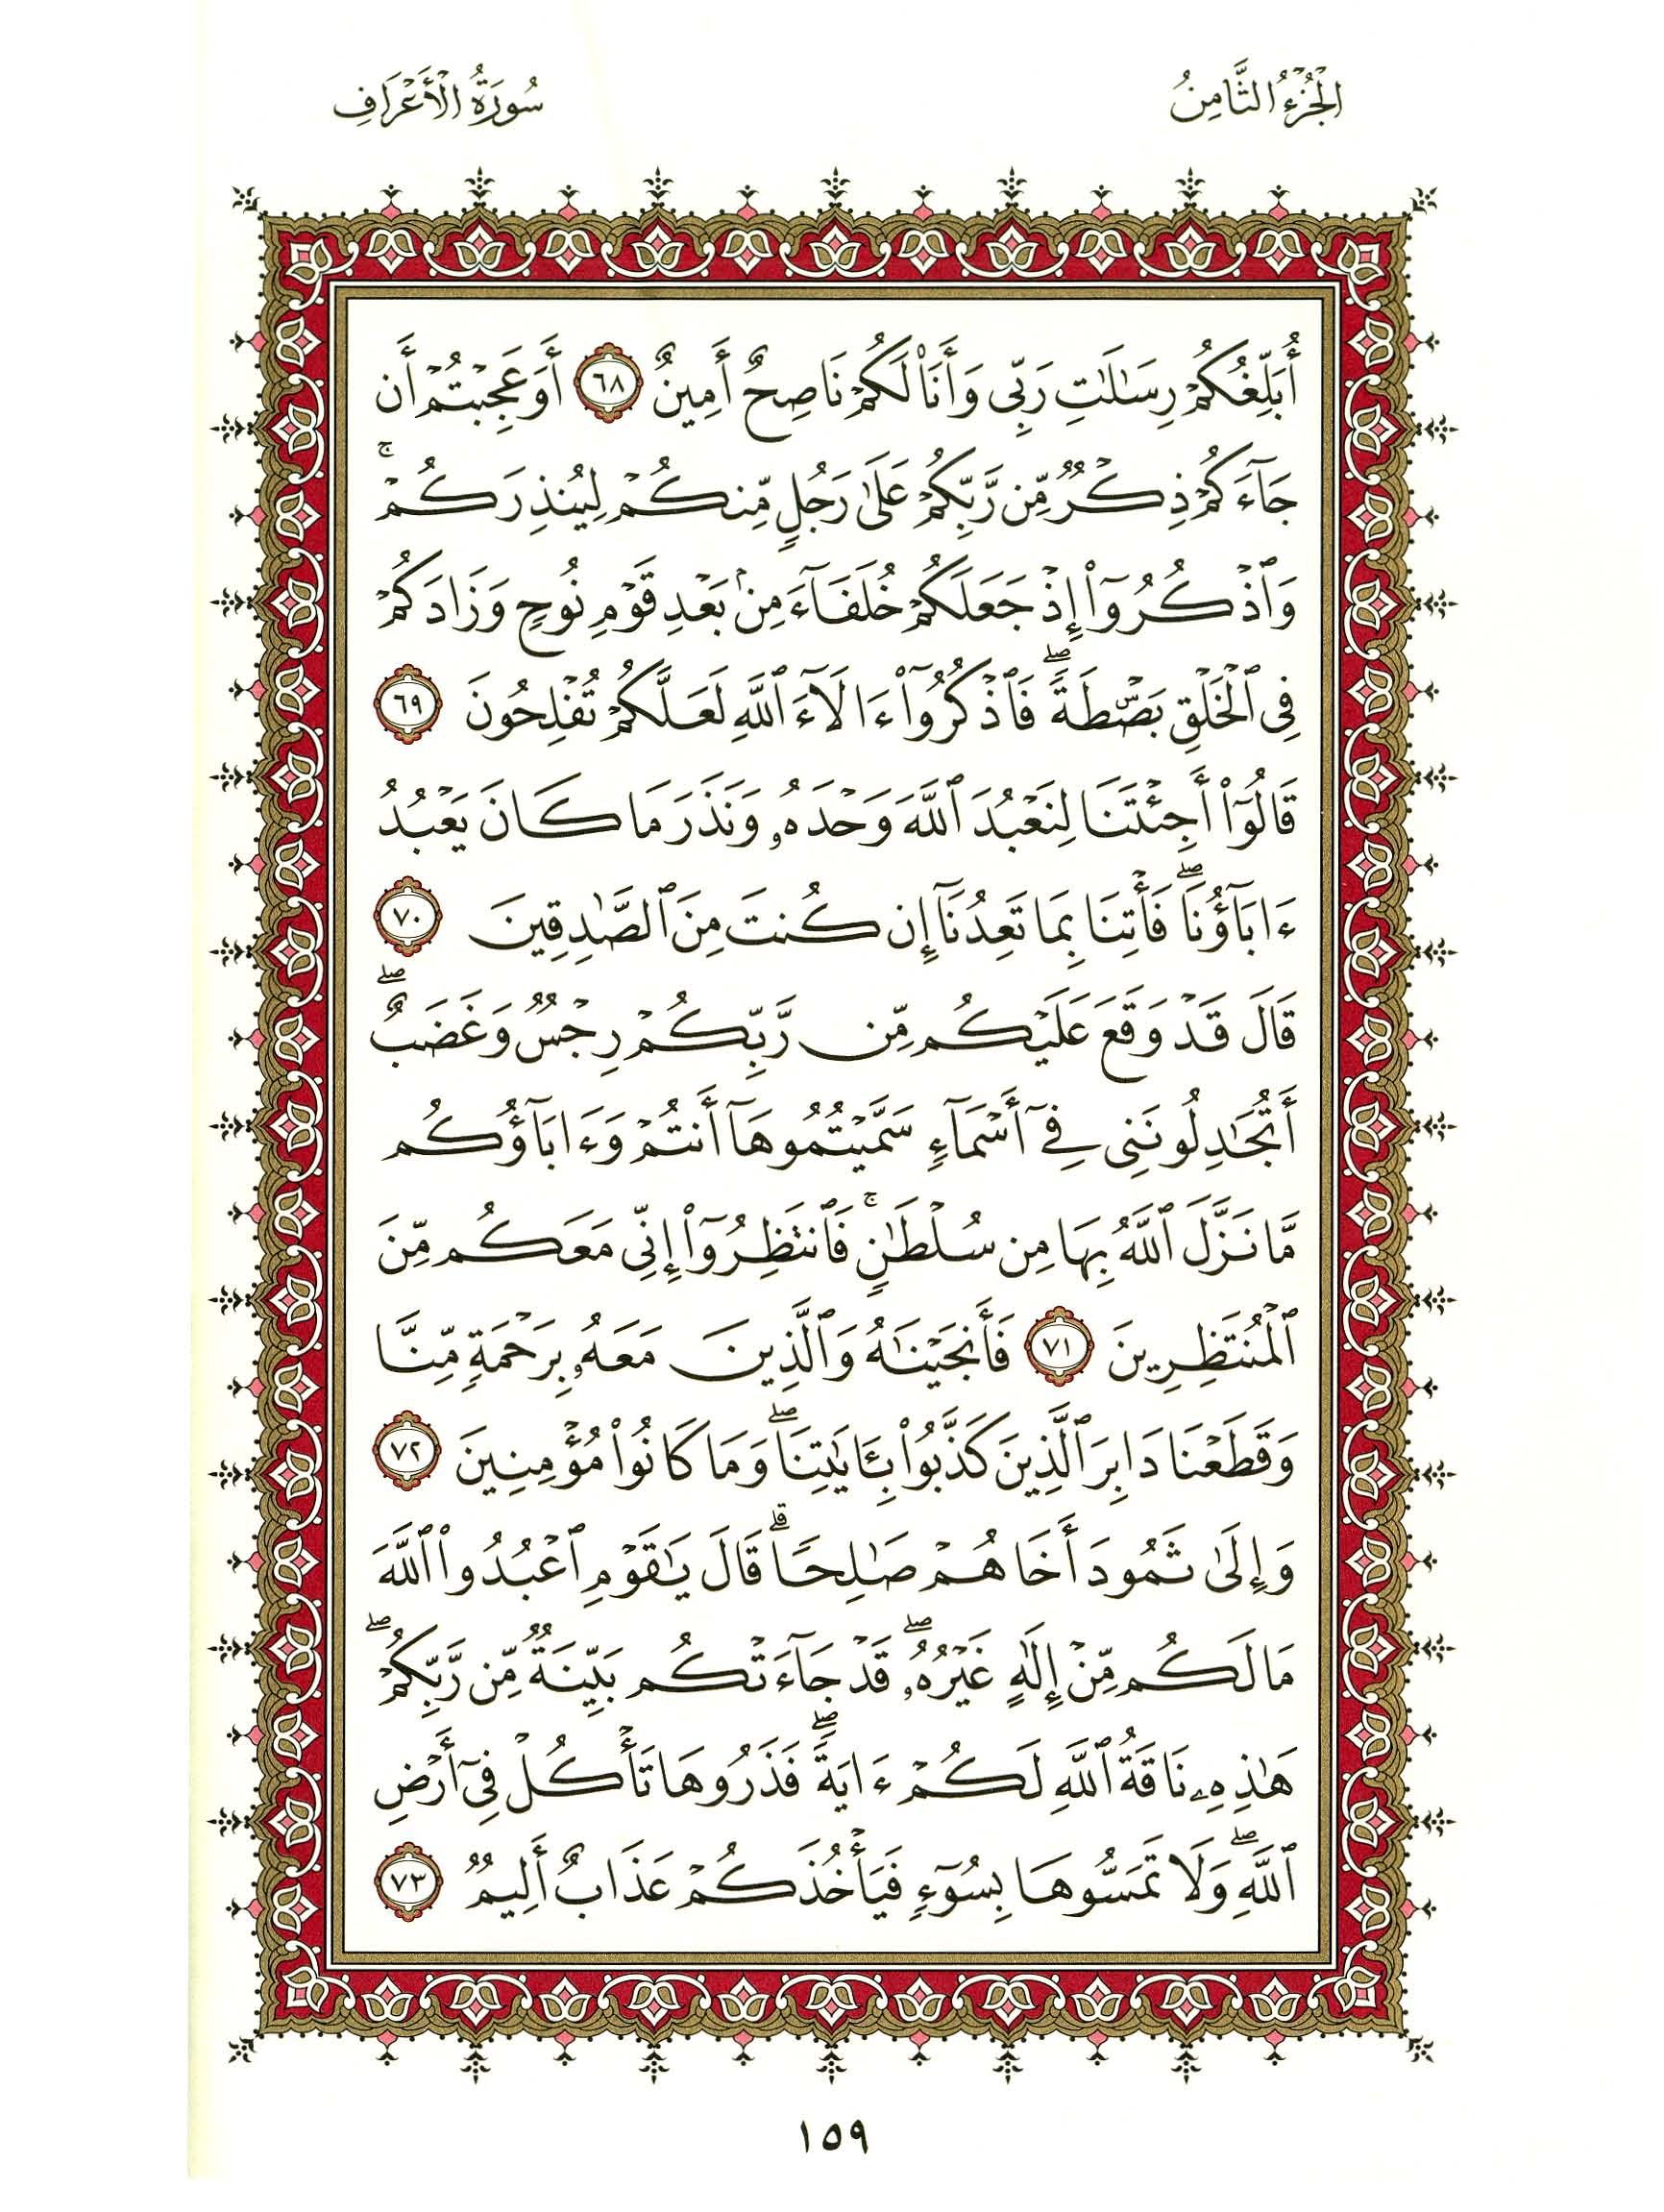 الجُزْءُ الثَّامِنُ
سُورَةُ الأَعْرَافِ
أُبَلِّغُكُمْ رِسَٰلَٰتِ رَبِّى وَأَنَا۠ لَكُمْ نَاصِحٌ أَمِينٌ ٦٨ أَوَعَجِبْتُمْ أَن
جَآءَكُمْ ذِكْرٌ مِّن رَّبِّكُمْ عَلَىٰ رَجُلٍ مِّنكُمْ لِيُنذِرَكُمْ ۚ
وَٱذْكُرُوٓا۟ إِذْ جَعَلَكُمْ خُلَفَآءَ مِنۢ بَعْدِ قَوْمِ نُوحٍ وَزَادَكُمْ
فِى ٱلْخَلْقِ بَصْۜطَةً ۖ فَٱذْكُرُوٓا۟ ءَالَآءَ ٱللَّهِ لَعَلَّكُمْ تُفْلِحُونَ ٦٩
قَالُوٓا۟ أَجِئْتَنَا لِنَعْبُدَ ٱللَّهَ وَحْدَهُۥ وَنَذَرَ مَا كَانَ يَعْبُدُ
ءَابَآؤُنَا ۖ فَأْتِنَا بِمَا تَعِدُنَآ إِن كُنتَ مِنَ ٱلصَّٰدِقِينَ ٧٠
قَالَ قَدْ وَقَعَ عَلَيْكُم مِّن رَّبِّكُمْ رِجْسٌ وَغَضَبٌ ۖ
أَتُجَٰدِلُونَنِى فِىٓ أَسْمَآءٍ سَمَّيْتُمُوهَآ أَنتُمْ وَءَابَآؤُكُم
مَّا نَزَّلَ ٱللَّهُ بِهَا مِن سُلْطَٰنٍ ۚ فَٱنتَظِرُوٓا۟ إِنِّى مَعَكُم مِّنَ
ٱلْمُنتَظِرِينَ ٧١ فَأَنجَيْنَٰهُ وَٱلَّذِينَ مَعَهُۥ بِرَحْمَةٍ مِّنَّا
وَقَطَعْنَا دَابِرَ ٱلَّذِينَ كَذَّبُوا۟ بِـَٔايَٰتِنَا ۖ وَمَا كَانُوا۟ مُؤْمِنِينَ ٧٢
وَإِلَىٰ ثَمُودَ أَخَاهُمْ صَٰلِحًا ۗ قَالَ يَٰقَوْمِ ٱعْبُدُوا۟ ٱللَّهَ
مَا لَكُم مِّنْ إِلَٰهٍ غَيْرُهُۥ ۖ قَدْ جَآءَتْكُم بَيِّنَةٌ مِّن رَّبِّكُمْ ۖ
هَٰذِهِۦ نَاقَةُ ٱللَّهِ لَكُمْ ءَايَةً ۖ فَذَرُوهَا تَأْكُلْ فِىٓ أَرْضِ
ٱللَّهِ ۖ وَلَا تَمَسُّوهَا بِسُوٓءٍ فَيَأْخُذَكُمْ عَذَابٌ أَلِيمٌ ٧٣
١٥٩